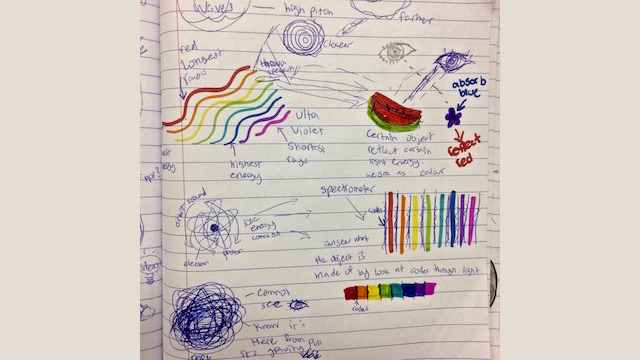 Waves
high pitch
farther
closer
red
longest
through
absorb
blue
reflect
red
Ultra
Violet
Shortest
rays
highest
energy
Certain object
reflect certain
light energy.
we see as colour
spectrometer
codes
orbit around
energy
electron
proton
can see what
the object is
made of by look at codes through light
codes
cannot
see
Know it's
there from pull
it's gravity